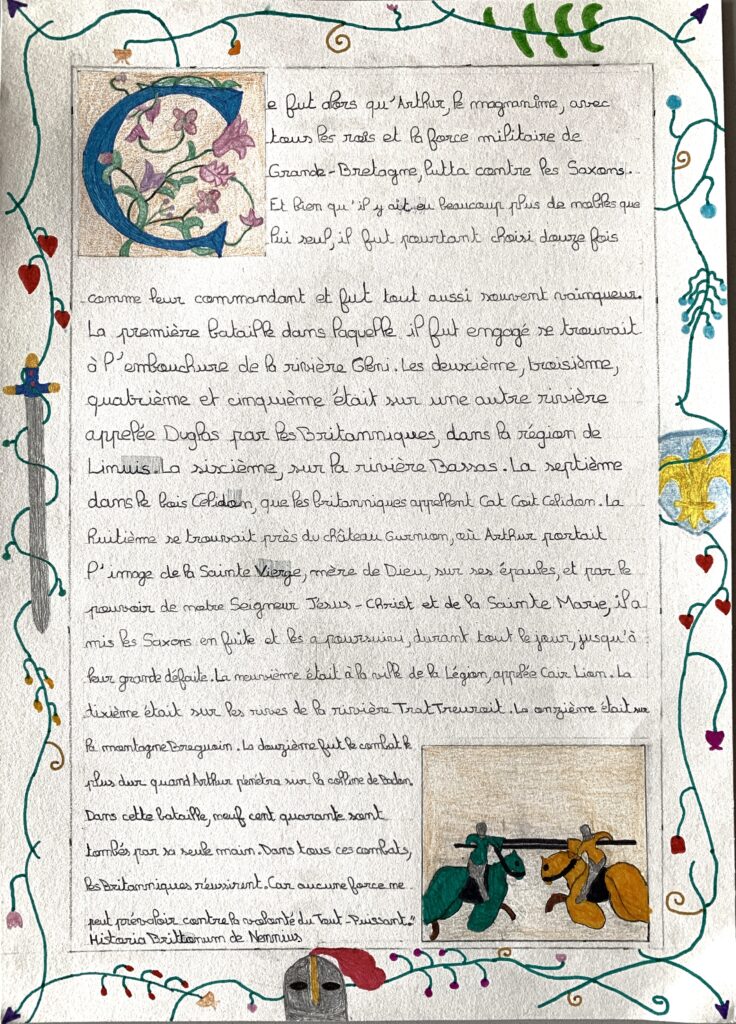 Ce fut alors qu'Arthur, le magnanime, avec
tous les rois et la force militaire de
Grande-Bretagne, lutta contre les Saxons.
Et bien qu'il y ait eu beaucoup plus de nobles que
lui seul, il fut pourtant choisi douze fois
comme leur commandant et fut tout aussi souvent vainqueur.
La première bataille dans laquelle il fut engagé se trouvait
à l'embouchure de la rivière Gleni. Les deuxième, troisième,
quatrième et cinquième était sur une autre rivière
appelée Duglas par les Britanniques, dans la région de
Linnuis. La sixième, sur la rivière Bassas. La septième
dans le bois Celidon, que les britanniques appellent Cat Coit Celidon. La
huitième se trouvait près du château Gurnion, où Arthur portait
l'image de la Sainte Vierge, mère de Dieu, sur ses épaules, et par le
pouvoir de notre Seigneur Jésus-Christ et de la Sainte Marie, il a
mis les Saxons en fuite et les a poursuivi, durant tout le jour, jusqu'à
leur grande défaite. La neuvième était à la ville de la Légion, appelée Cair Lion. La
dixième était sur les rives de la rivière Trat Treuroit. La onzième était sur
la montagne Breguoin. La douzième fut le combat le
plus dur quand Arthur pénétra sur la colline de Badon.
Dans cette bataille, neuf cent quarante sont
tombés par sa seule main. Dans tous ces combats,
les Britanniques réussirent. Car aucune force ne
peut prévaloir contre la volonté du Tout-Puissant."
Historia Brittonum de Nennius